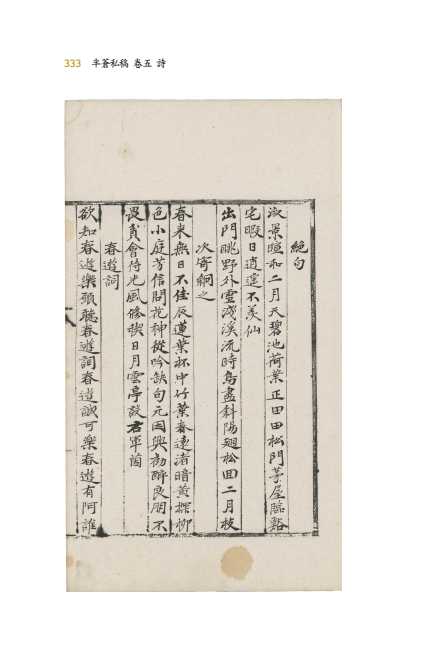 333 半蒼私稿 卷五 詩
絶句
淑景暄和二月天碧池荷葉正田田松門茅屋臨谿
宅暇日逍遙不羨仙
出門眺野外雲淺溪流時鳥盡斜陽廻松回二月枝
次寄綱之
春來無日不佳辰蓮葉杯中竹葉春遠渚暗黄撩柳
色小庭芳信問花神從吟缺句元因興勸醉良朋不
畏貧會待光風修禊日月雲亭敵右軍茵
春遊詞
欲知春遊樂須聽春遊詞春遊誠可樂春遊有阿誰